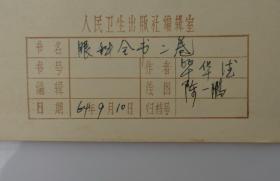 人民卫生出版社编辑室
书名 眼科全书二卷
书号 作者 毕华德
编辑 绘图 陈一鹏
日期 64年9月10日 归档号